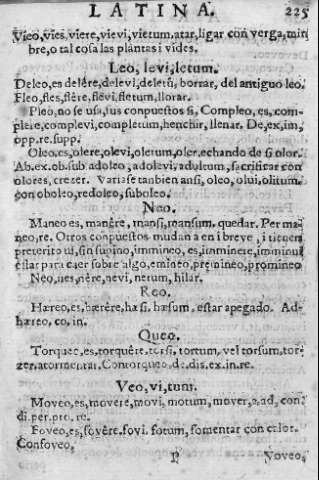 LATINA. 225
Vieo, vies, viere, vievi, vietum, atar, ligar con verga, mim
bre, o tal cosa las plantas i vides.
Leo, levi, letum.
Deleo, es, delêre, delevi, deletũ, borrar, del antiguo leo.
Fleo, fles, flêre, flevi, fletum, llorar.
Pleo, no se usa, sus conpuestos si, Compleo, es, com-
plere, complevi, completum, henchir, llenar. De, ex, im,
opp. re. supp.
Oleo, es, olere, olevi, oletum, oler, echando de si olor.
Ab. ex. ob. sub adoleo, adolevi, adultum, sacrificar con
olores, crecer. Variase tanbien ansi, oleo, olui, olitum.
con oboleo, redoleo, suboleo.
Neo.
Maneo es, manêre, mansi, mansum, quedar. Per ma
neo, re. Otros conpuestos mudan a en i breve, i tienen
preterito ui, sin supino, immineo, es, imminere, imminui
estar para caer sobre algo, emineo, premineo, promineo
Neo, nes, nêre, nevi, netum, hilar.
Reo.
Hæreo, es, hærêre, hæsi, hæsum, estar apegado. Ad-
hæreo, co, in.
Queo.
Torqueo, es, torquêre, torsi, tortum, vel torsum, tor-
zer, atormentar. Contorqueo, de. dis. ex. in. re.
Veo, vi, tum.
Moveo, es, movere, movi, motum, mover, a. ad, con
di. per. pro. re.
Foveo, es, fovêre, fovi, fotum, fomentar con calor.
Confoveo.
P Voveo,